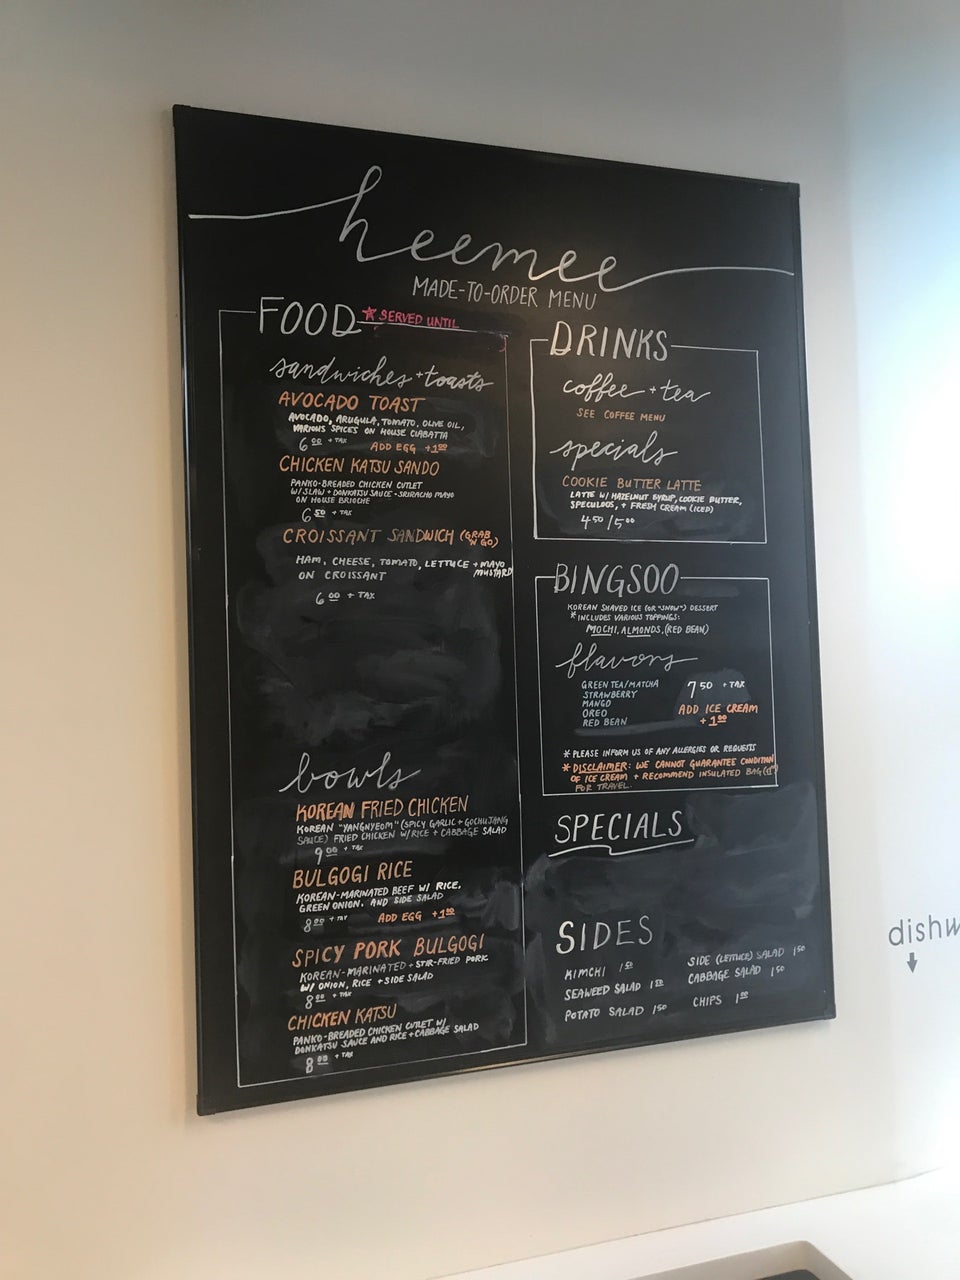 heemee
MADE-TO-ORDER MENU
FOOD
* SERVED UNTIL
sandwiches + toasts
AVOCADO TOAST
AVOCADO, ARUGULA, TOMATO, OLIVE OIL,
VARIOUS SPICES ON HOUSE CIABATTA
6 00 + TAX ADD EGG +1 00
CHICKEN KATSU SANDO
PANKO-BREADED CHICKEN CUTLET
W/SLAW + DONKATSU SAUCE - SRIRACHA MAYO
ON HOUSE BRIOCHE
6 50 + TAX
CROISSANT SANDWICH (GRAB N GO)
HAM, CHEESE, TOMATO, LETTUCE + MAYO/MUSTARD
ON CROISSANT
6 00 + TAX
bowls
KOREAN FRIED CHICKEN
KOREAN "YANGNYEOM" (SPICY GARLIC + GOCHUJANG
SAUCE) FRIED CHICKEN W/RICE + CABBAGE SALAD
9 00 + TAX
BULGOGI RICE
KOREAN-MARINATED BEEF W/ RICE,
GREEN ONION, AND SIDE SALAD
8 00 + TAX ADD EGG +1 00
SPICY PORK BULGOGI
KOREAN-MARINATED + STIR-FRIED PORK
W/ ONION, RICE + SIDE SALAD
8 00 + TAX
CHICKEN KATSU
PANKO-BREADED CHICKEN CUTLET W/
DONKATSU SAUCE AND RICE + CABBAGE SALAD
8 00 + TAX
DRINKS
coffee + tea
SEE COFFEE MENU
specials
COOKIE BUTTER LATTE
LATTE W/ HAZELNUT SYRUP, COOKIE BUTTER,
SPECULOOS, + FRESH CREAM (ICED)
4 50 / 5 00
BINGSOO
KOREAN SHAVED ICE (OR "SNOW") DESSERT
* INCLUDES VARIOUS TOPPINGS:
MOCHI, ALMONDS, (RED BEAN)
flavors
GREEN TEA/MATCHA
STRAWBERRY
MANGO
OREO
RED BEAN
7 50 + TAX
ADD ICE CREAM
+ 1 00
* PLEASE INFORM US OF ANY ALLERGIES OR REQUESTS
* DISCLAIMER: WE CANNOT GUARANTEE CONDITION
OF ICE CREAM + RECOMMEND INSULATED BAG
FOR TRAVEL.
SPECIALS
SIDES
KIMCHI 1 50
SEAWEED SALAD 1 50
POTATO SALAD 1 50
SIDE (LETTUCE) SALAD 1 50
CABBAGE SALAD 1 50
CHIPS 1 00
dishw